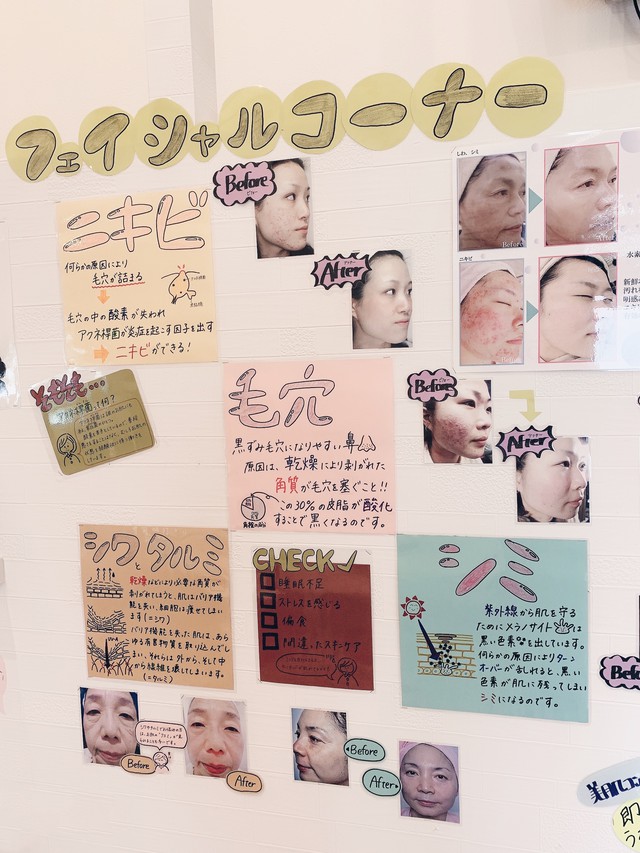 フェイシャルコーナー
Before
After
しわ、シミ
Before
ニキビ
ニキビ
何らかの原因により
毛穴が詰まる
毛穴の中の酸素が失われ
アクネ桿菌が炎症を起こす因子を出す
ニキビができる!
そもそも…
アクネ桿菌って何?
毛穴
黒ずみ毛穴になりやすい鼻
原因は、乾燥により剥がれた
角質が毛穴を塞ぐこと!!
この30%の皮脂が酸化
することで黒くなるのです。
Before
After
シワとタルミ
乾燥などにより必要な角質が
剥がれてしまうと、肌はバリア機
能を失い、細胞は痩せてしまい
ます(=シワ)
バリア機能を失った肌は、あら
ゆる有害物質を取り込んでし
まい、それらは外から、そして中
から組織を壊してしまいます。
(=タルミ)
CHECK✓
睡眠不足
ストレスを感じる
偏食
間違ったスキンケア
シミ
紫外線から肌を守る
ためにメラノサイトは
黒い色素を出しています。
何らかの原因によりターン
オーバーが乱れると、黒い
色素が肌に残ってしまい
シミになるのです。
Before
After
Before
After